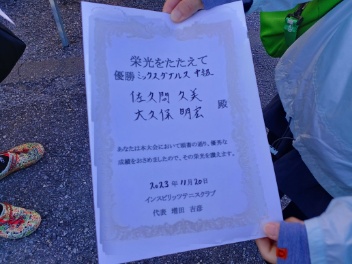 栄光をたたえて
優勝 ミックスダブルス 中級
佐久間 久美
大久保 明宏 殿
あなたは本大会において頭書の通り、優秀な
成績をおさめましたので、その栄光を讃えます。
2023年 11月20日
インスピリッツテニスクラブ
代表 増田 吉彦